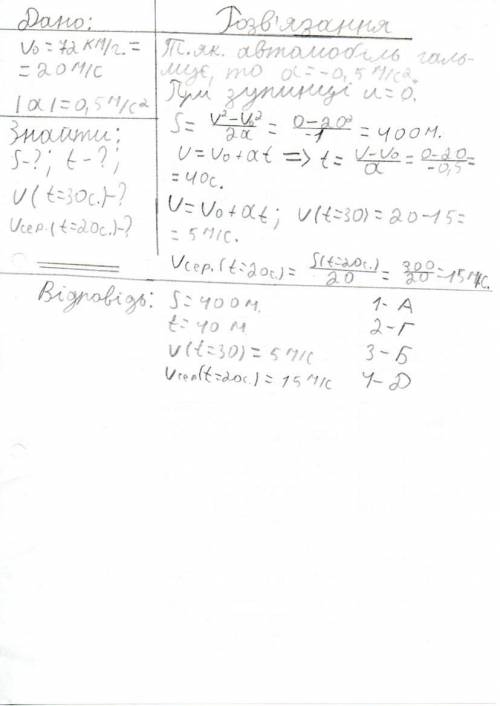 Дано:
V₀ = 72 км/г. =
= 20 м/с
|a| = 0,5 м/с²
Знайти:
S-?; t-?;
V(t=30с.)-?
Vсер.(t=20с.)-?
Розв'язання
Т.як. автомобіль галь-
мує, то a = -0,5 м/с².
При зупинці u = 0.
S = (V²-V₀²)/2a = (0-20²)/-1 = 400 м.
V = V₀ + at => t = (V-V₀)/a = (0-20)/-0,5 =
= 40с.
V = V₀ + at; V(t=30) = 20-15 =
= 5 м/с.
Vсер.(t=20с.) = S(t=20с.)/20 = 300/20 = 15 м/с.
Відповідь: S = 400 м. 1-А
t = 40 м. 2-Г
V(t=30) = 5 м/с 3-Б
Vсер(t=20с.) = 15 м/с 4-Д